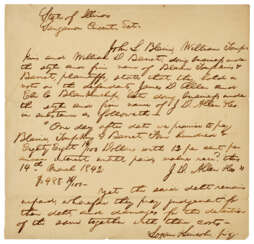 State of Illinois
Sangamon Circuit Sct.
John L Blaine, William Tomp
kins and William D Barret, doing business under
the style and firm name of Blaine Tompkins &
Barret, plaintiffs, state that they hold a
note on the defendants, James D Allen and
Eli C Blankenship, late doing business under
the style and firm name of J D Allen & Co
in substance as followeth:
"One day after date we promise to pay
Blaine Tompkins & Barret Four hundred &
Eighty Eight 18/100 Dollars with 12 per cent per
annum interest until paid value recd. this
14th March 1842 J. D. Allen & Co"
$488 18/100
Yet the said debt remains
unpaid, wherefore they pray judgment for
their debt and damages for the detention
of the same together with their costs.
Logan & Lincoln p.q.